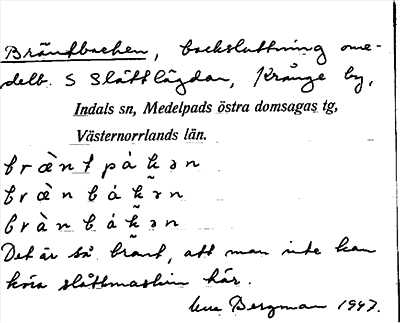 Bräntbacken, backsluttning ome-
delb. S Slåttlägdan, Krånge by,
Indals sn, Medelpads östra domsagas tg,
Västernorrlands län.
bræ̀ntpákən
bræ̀nbákən
brànbákən
Det är så brant, att man inte kan
köra slåttmaskin här.
Bergman 1947.